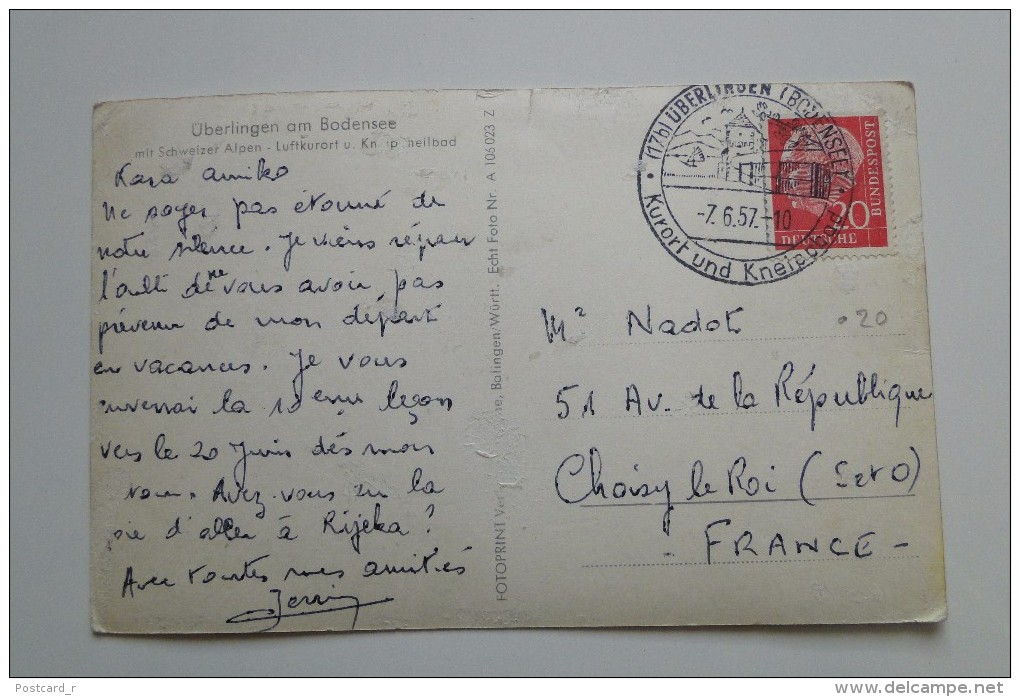 Überlingen am Bodensee
mit Schweizer Alpen - Luftkurort u. Kneippheilbad
Kara amiko
Ne soyez pas étonné de
notre silence. Je viens réparer
l'oubli de ne vous avoir pas
prévenu de mon départ
en vacances. Je vous
enverrai la 10 eme leçon
vers le 20 Juin dés mon
retour. Avez-vous eu la
joie d'aller à Rijeka?
Avec toutes mes amitiés
FOTOPRINT Balingen/Württ. Echt Foto Nr. A 106 023 Z
(17b) ÜBERLINGEN (BODENSEE)
-7.6.57.-10
Kurort und Kneippbad
20
DEUTSCHE
BUNDESPOST
20
Mr Nadot
51 Av. de la République
Choisy le Roi (S et O)
- FRANCE -
Postcard_r
www.delcampe.net